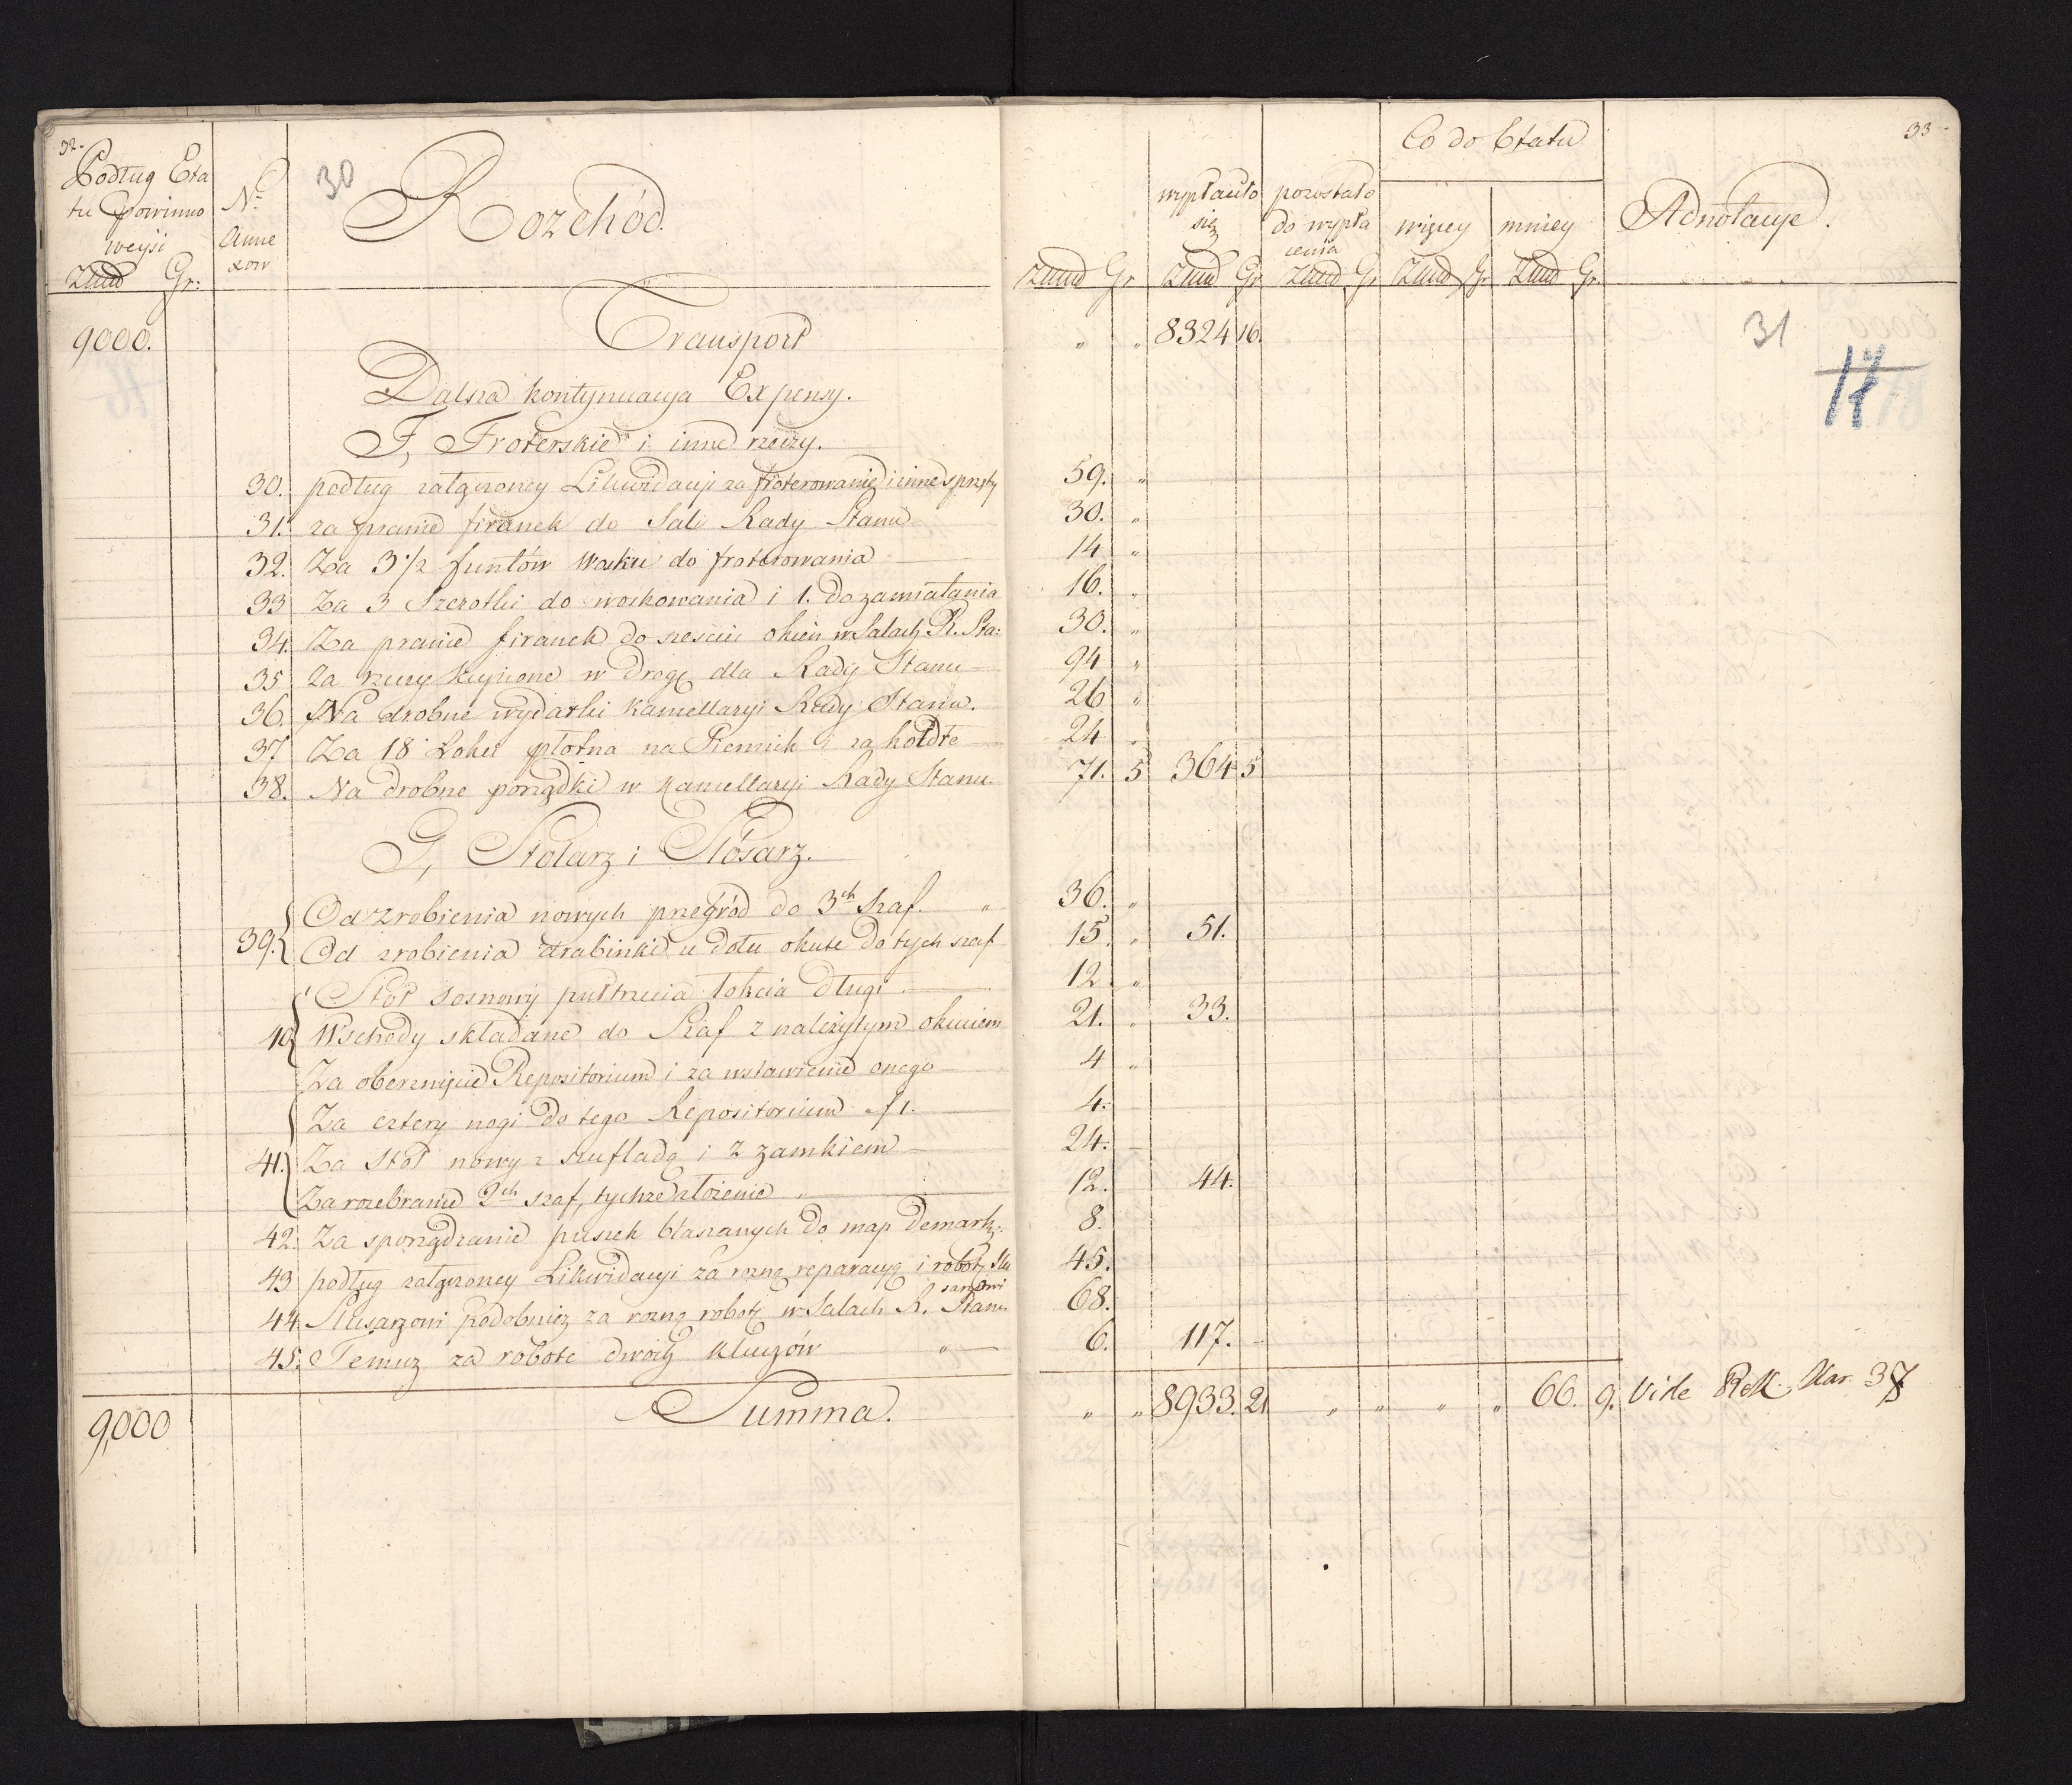 32.
33
30
Podług Eta
tu powinno
weyści
Złłł Gr:
No
Anne
xow
Rozchód.
Złłł Gr
wypłaciło
się
Złłł Gr
pozostało
do wypła
cenia
Złłł Gr
Co do Etatu
więcey
Złłł Gr
mniey
Złłł Gr.
Adnotacye.
9000. Transport " " 8324 16.
31
17
Dalsza kontynuacya Expensy.
F, Froterskie i inne rzeczy.
30. podług załączoney Likwidacyi za froterowanie i inne sprzęty 59. "
31. za pranie firanek do Sali Rady Stanu 30. "
32. Za 3 1/2 funtów Wosku do froterowania 14 "
33 Za 3 Szczotki do woskowania i 1. do zamiatania 16. "
34. Za pranie firanek do sześciu okien w Salach R. Sta: 30. "
35 Za rzeczy kupione w drogę dla Rady Stanu 94 "
36. Na drobne wydatki Kancellaryi Rady Stanu. 26 "
37 Za 18 Łokci płótna na Siennik i za kołdrę 24 "
38. Na drobne porządki w Kancellaryi Rady Stanu. 71. 5 364 5
G, Stolarz i Slósarz.
39. Od zrobienia nowych przegród do 3ch Szaf. " 36. "
Od zrobienia drabinki u dołu okute do tych szaf 15. " 51.
40 Stół sosnowy pułtrzecia łokcia długi 12. "
Wschody składane do Szaf z należytym okuciem 21. " 33.
41. Za oberznięcie Repositorium i za wstawienie onego 4 "
Za cztery nogi do tego Repositorium af 1. 4.
Za Stół nowy z szufladą i z zamkiem 24.
Za rozebranie 2ch szaf, tychże złożenie 12. 44.
42. Za sporządzanie puszek blaszanych do map Demark: 8.
43 podług załączoney Likwidacyi za rożną reparacyą i robotę Slu
sarzowi 45.
44. Slusarzowi podobnież za rożną robotę w Salach R. Stanu 68.
45. Temuż za robote dwoch kluczów " 6. 117.
9,000 Summa. " " 8933. 21. " " " " 66. 9. Vide Rek. Kar. 38